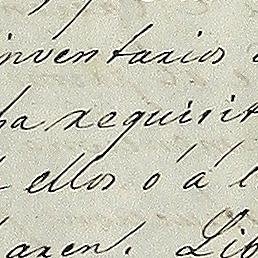 inventarios
requisit
ellos ó á l
axen. Lib